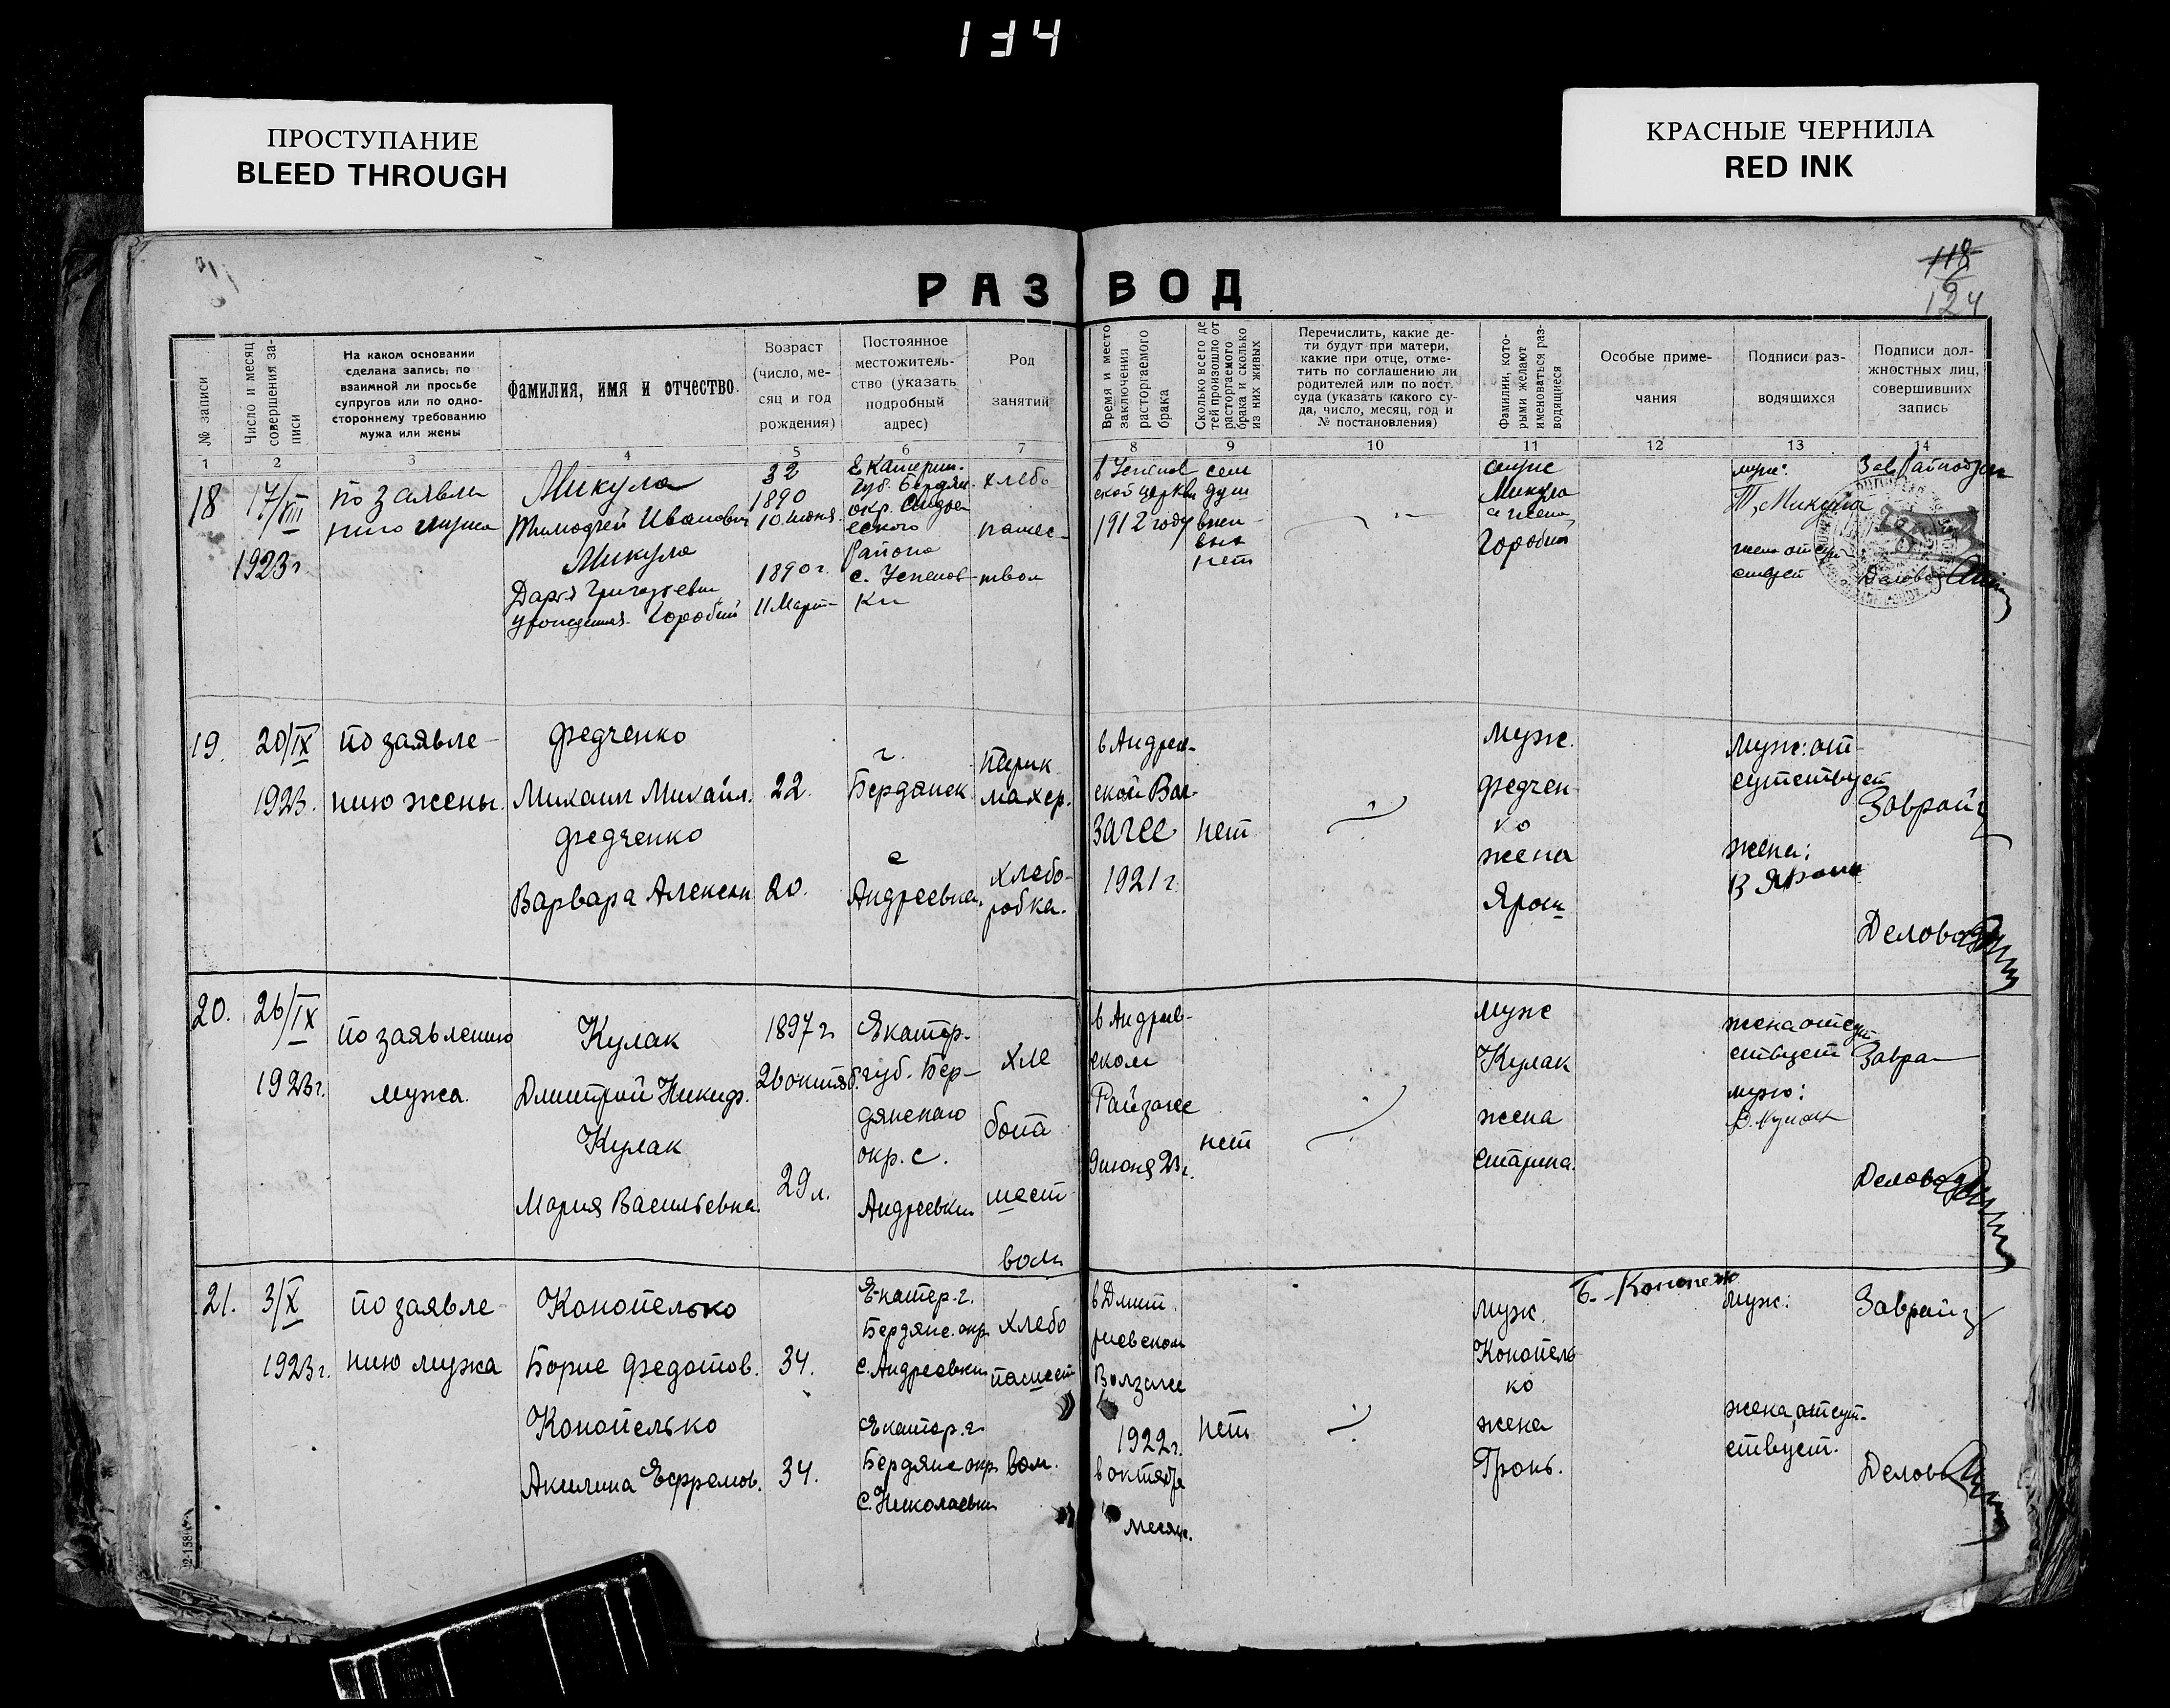 134
ПРОСТУПАНИЕ
BLEED THROUGH
КРАСНЫЕ ЧЕРНИЛА
RED INK
118
124
РАЗВОД
№ записи
Число и месяц
совершения за-
писи
На каком основании
сделана запись, по
взаимной ли просьбе
супругов или по одно-
стороннему требованию
мужа или жены
Фамилия, имя и отчество.
Возраст
(число, ме-
сяц и год
рождения)
Постоянное
местожитель-
ство (указать
подробный
адрес)
Род
занятий
Время и место
заключения
расторгаемого
брака
Сколько всего де
тей произошло от
расторгаемого
брака и сколько
из них живых
Перечислить, какие де-
ти будут при матери,
какие при отце, отме-
тить по соглашению ли
родителей или по пост.
суда (указать какого су-
да, число, месяц, год и
№ постановления)
Фамилии, кото-
рыми желают
именоваться раз-
водящиеся
Особые приме-
чания
Подписи раз-
водящихся
Подписи дол-
жностных лиц,
совершивших
запись
1 2 3 4 5 6 7 8 9 10 11 12 13 14
18
17/VIII
1923 г
по заявле
нию мужа
Микула
Тимофей Иванович
Микула
Дарья Григорьевн
урожденная Горобий
32
1890
10 июня
1890 г.
11 Март
Екатерин.
губ. Бердян.
окр. Андре
еского
Района
с. Успенов
ки
хлебо
пашес-
твом
в Успенов
ской церкви
1912 году
сем
душ
нет
муж
Микула
а жена
муж:
Т. Микула
жена отсут
ствует
Деловод
19.
20/IX
1923.
по заявле-
нию жены.
Федченко
Михаил Михайл.
Федченко
Варвара Алексан
22.
20.
г.
Бердянск
с
Андреевка.
Парик
махер.
хлебо-
робка.
в Андрее-
ской Вол-
загсе
1921 г.
нет
муж.
Федчен-
ко
жена
Ярош
Муж: от-
сутствует
жена:
Заврайз
Деловод
20.
26/IX
1923 г.
по заявлению
мужа.
Кулак
Дмитрий Никиф.
Кулак
Мария Васильевна
1897 г.
26 октяб.
29 л.
Екатер.
губ. Бер-
дянского
окр. с.
Андреевки
хле
бопа
шест
вом
в Андреев-
ском
Райзагсе
9 июня 23 г.
нет
муж
Кулак
жена
Старина.
жена отсут
ствует
мужа:
Д. Кулак
Завра
Деловод
21.
3/X
1923 г.
по заявле
нию мужа
Конопелько
Борис Федотов.
Конопелько
Акилина Ефремов.
34.
34.
Екатер. г.
Бердянс. окр
с. Андреевки
Екатер. г.
Бердянс окр
с. Николаевки
хлебо
пашест
вом.
в Дмит
риевском
Волзагсе
1922 г.
в октябре
месяце.
нет
муж.
Конопель
ко
жена
Гронь.
Б. Конопелько
муж:
жена отсут-
ствует.
Заврайз
Делов